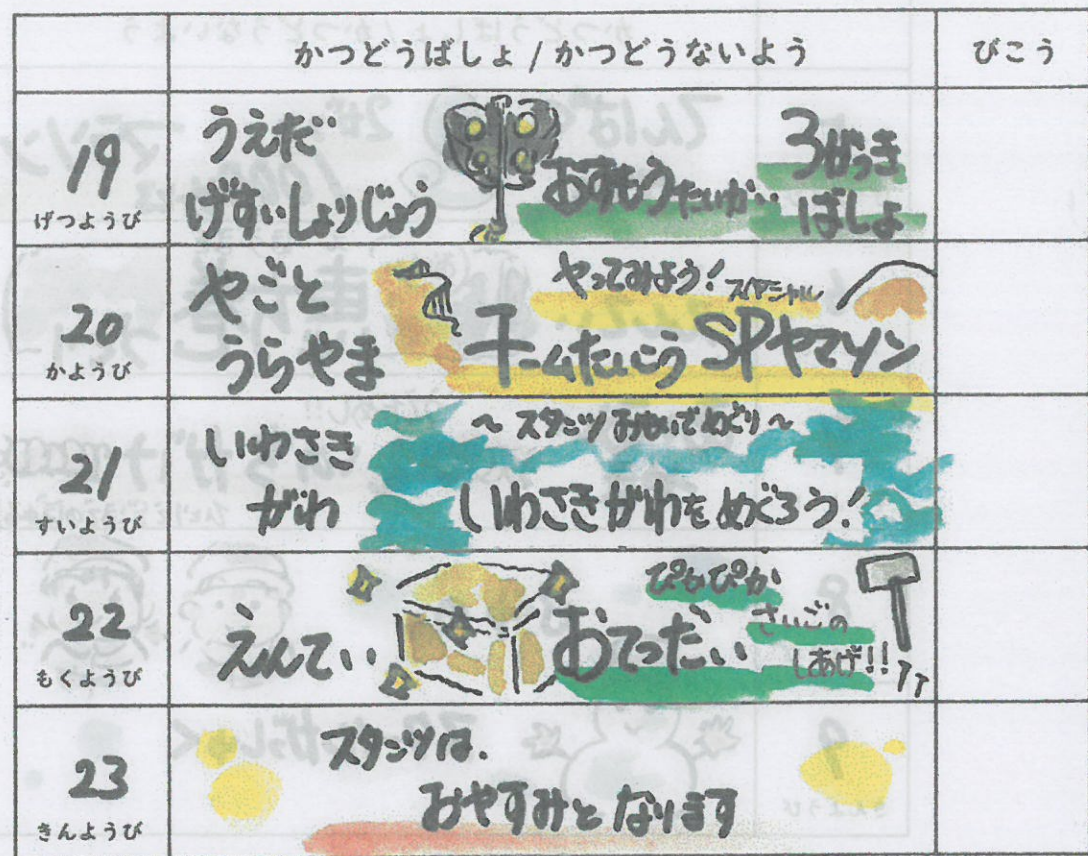 かつどうばしょ / かつどうないよう
びこう
19
げつようび
うえだ
げすいしょりじょう
おすもうたいかい
3がっき
ばしょ
20
かようび
やごと
うらやま
やってみよう! スペシャル
チームたいこう SPヤマソン
21
すいようび
いわさき
がわ
~ スタンツおもいでめぐり ~
いわさきがわをめぐろう!
22
もくようび
えんてい
ぴかぴか
おてつだい
さいごの
しあげ!!
23
きんようび
スタンツは、
おやすみとなります